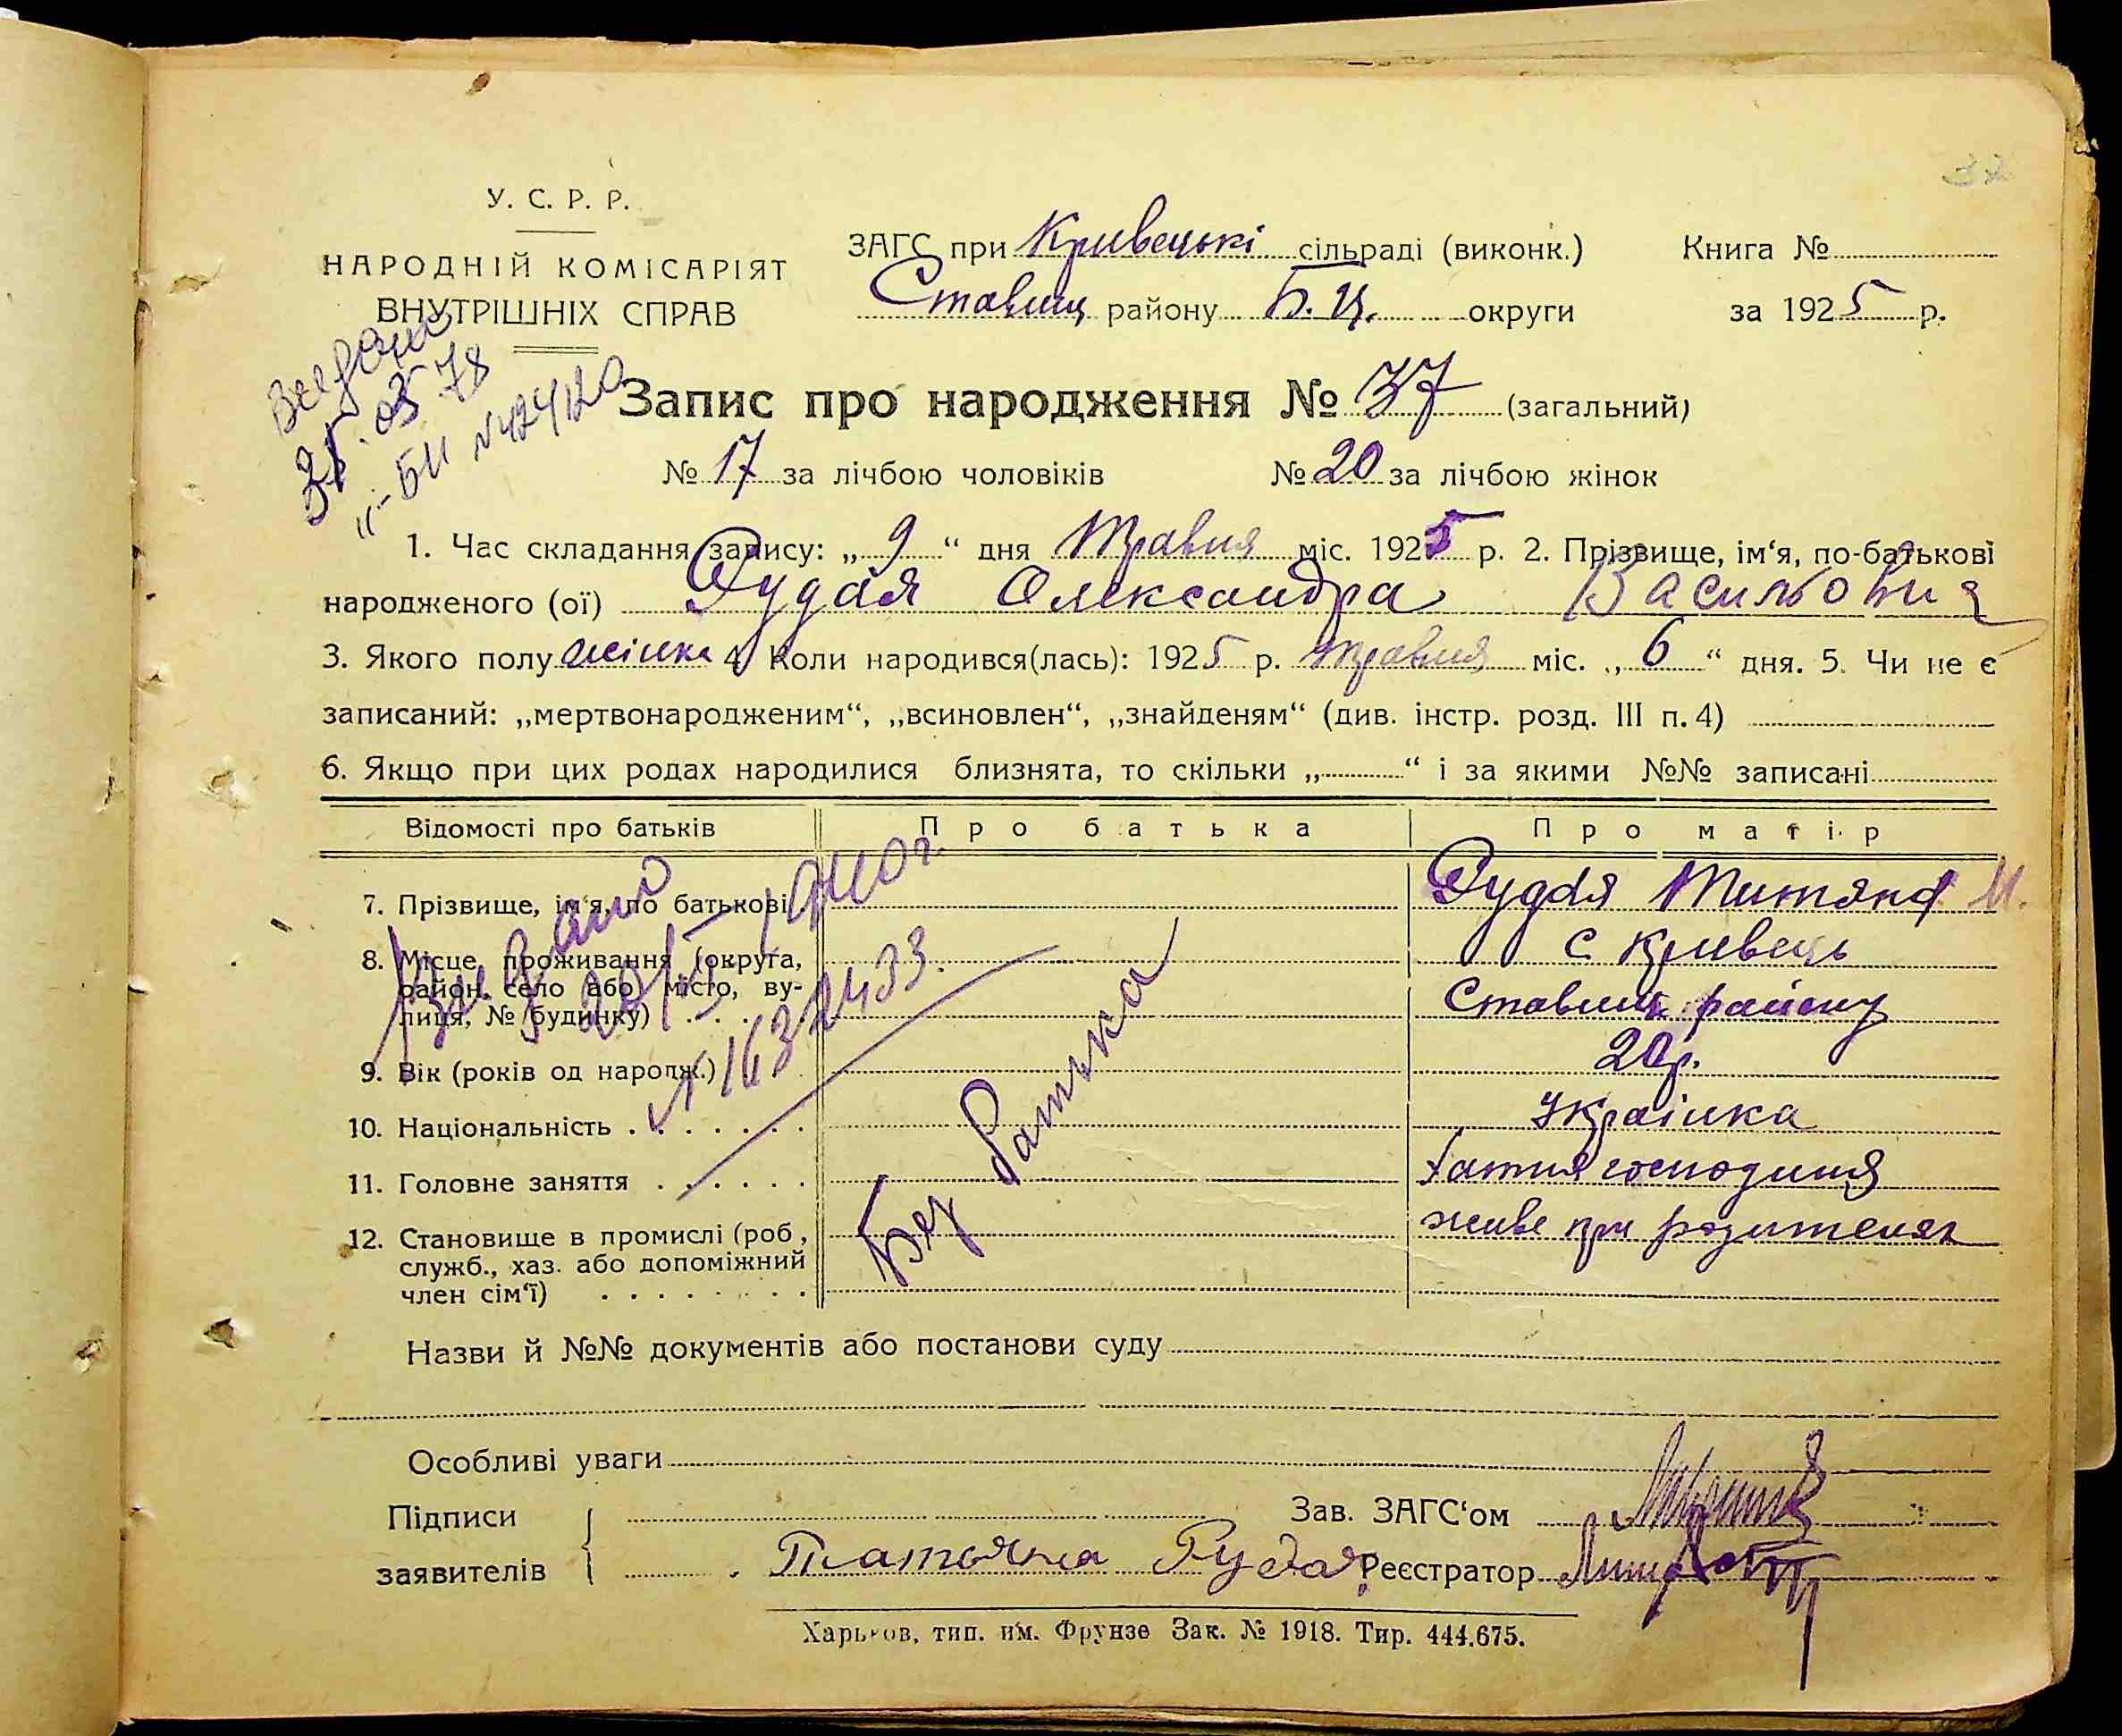 37
У. С. Р. Р.
НАРОДНІЙ КОМІСАРІЯТ
ВНУТРІШНІХ СПРАВ
ЗАГС при Кривецькі сільраді (виконк.) Книга №
Ставищ району Б. Ц. округи за 1925 р.
Запис про народження № 37 (загальний)
№ 17 за лічбою чоловіків № 20 за лічбою жінок
1. Час складання запису: „ 9 “ дня Травня міс. 1925 р. 2. Прізвище, ім‘я, по-батькові
народженого (ої) Рудая Олександра Васильовна
3. Якого полу жінка 4. Коли народився(лась): 1925 р. травня міс. „ 6 “ дня. 5. Чи не є
записаний: „мертвонародженим“, „всиновлен“, „знайденям“ (див. інстр. розд. III п. 4)
6. Якщо при цих родах народилися близнята, то скільки „ “ і за якими №№ записані
Відомості про батьків Про батька Про матір
7. Прізвище, ім‘я, по батькові Рудая Титяна М.
8. Місце проживання (округа, с Кривець
район, село або місто, ву-
лиця, № будинку) Ставищ району
9. Вік (років од народж.) 20 р.
10. Національність Українка
11. Головне заняття хатня господиня
12. Становище в промислі (роб, живе при родителях
служб., хаз. або допоміжний
член сім‘ї)
Без батька
1940 г.
№ 1632433.
Назви й №№ документів або постанови суду
Особливі уваги
Підписи
заявителів Татьяна Рудая
Зав. ЗАГС‘ом
Реєстратор
Харьков, тип. им. Фрунзе Зак. № 1918. Тир. 444.675.